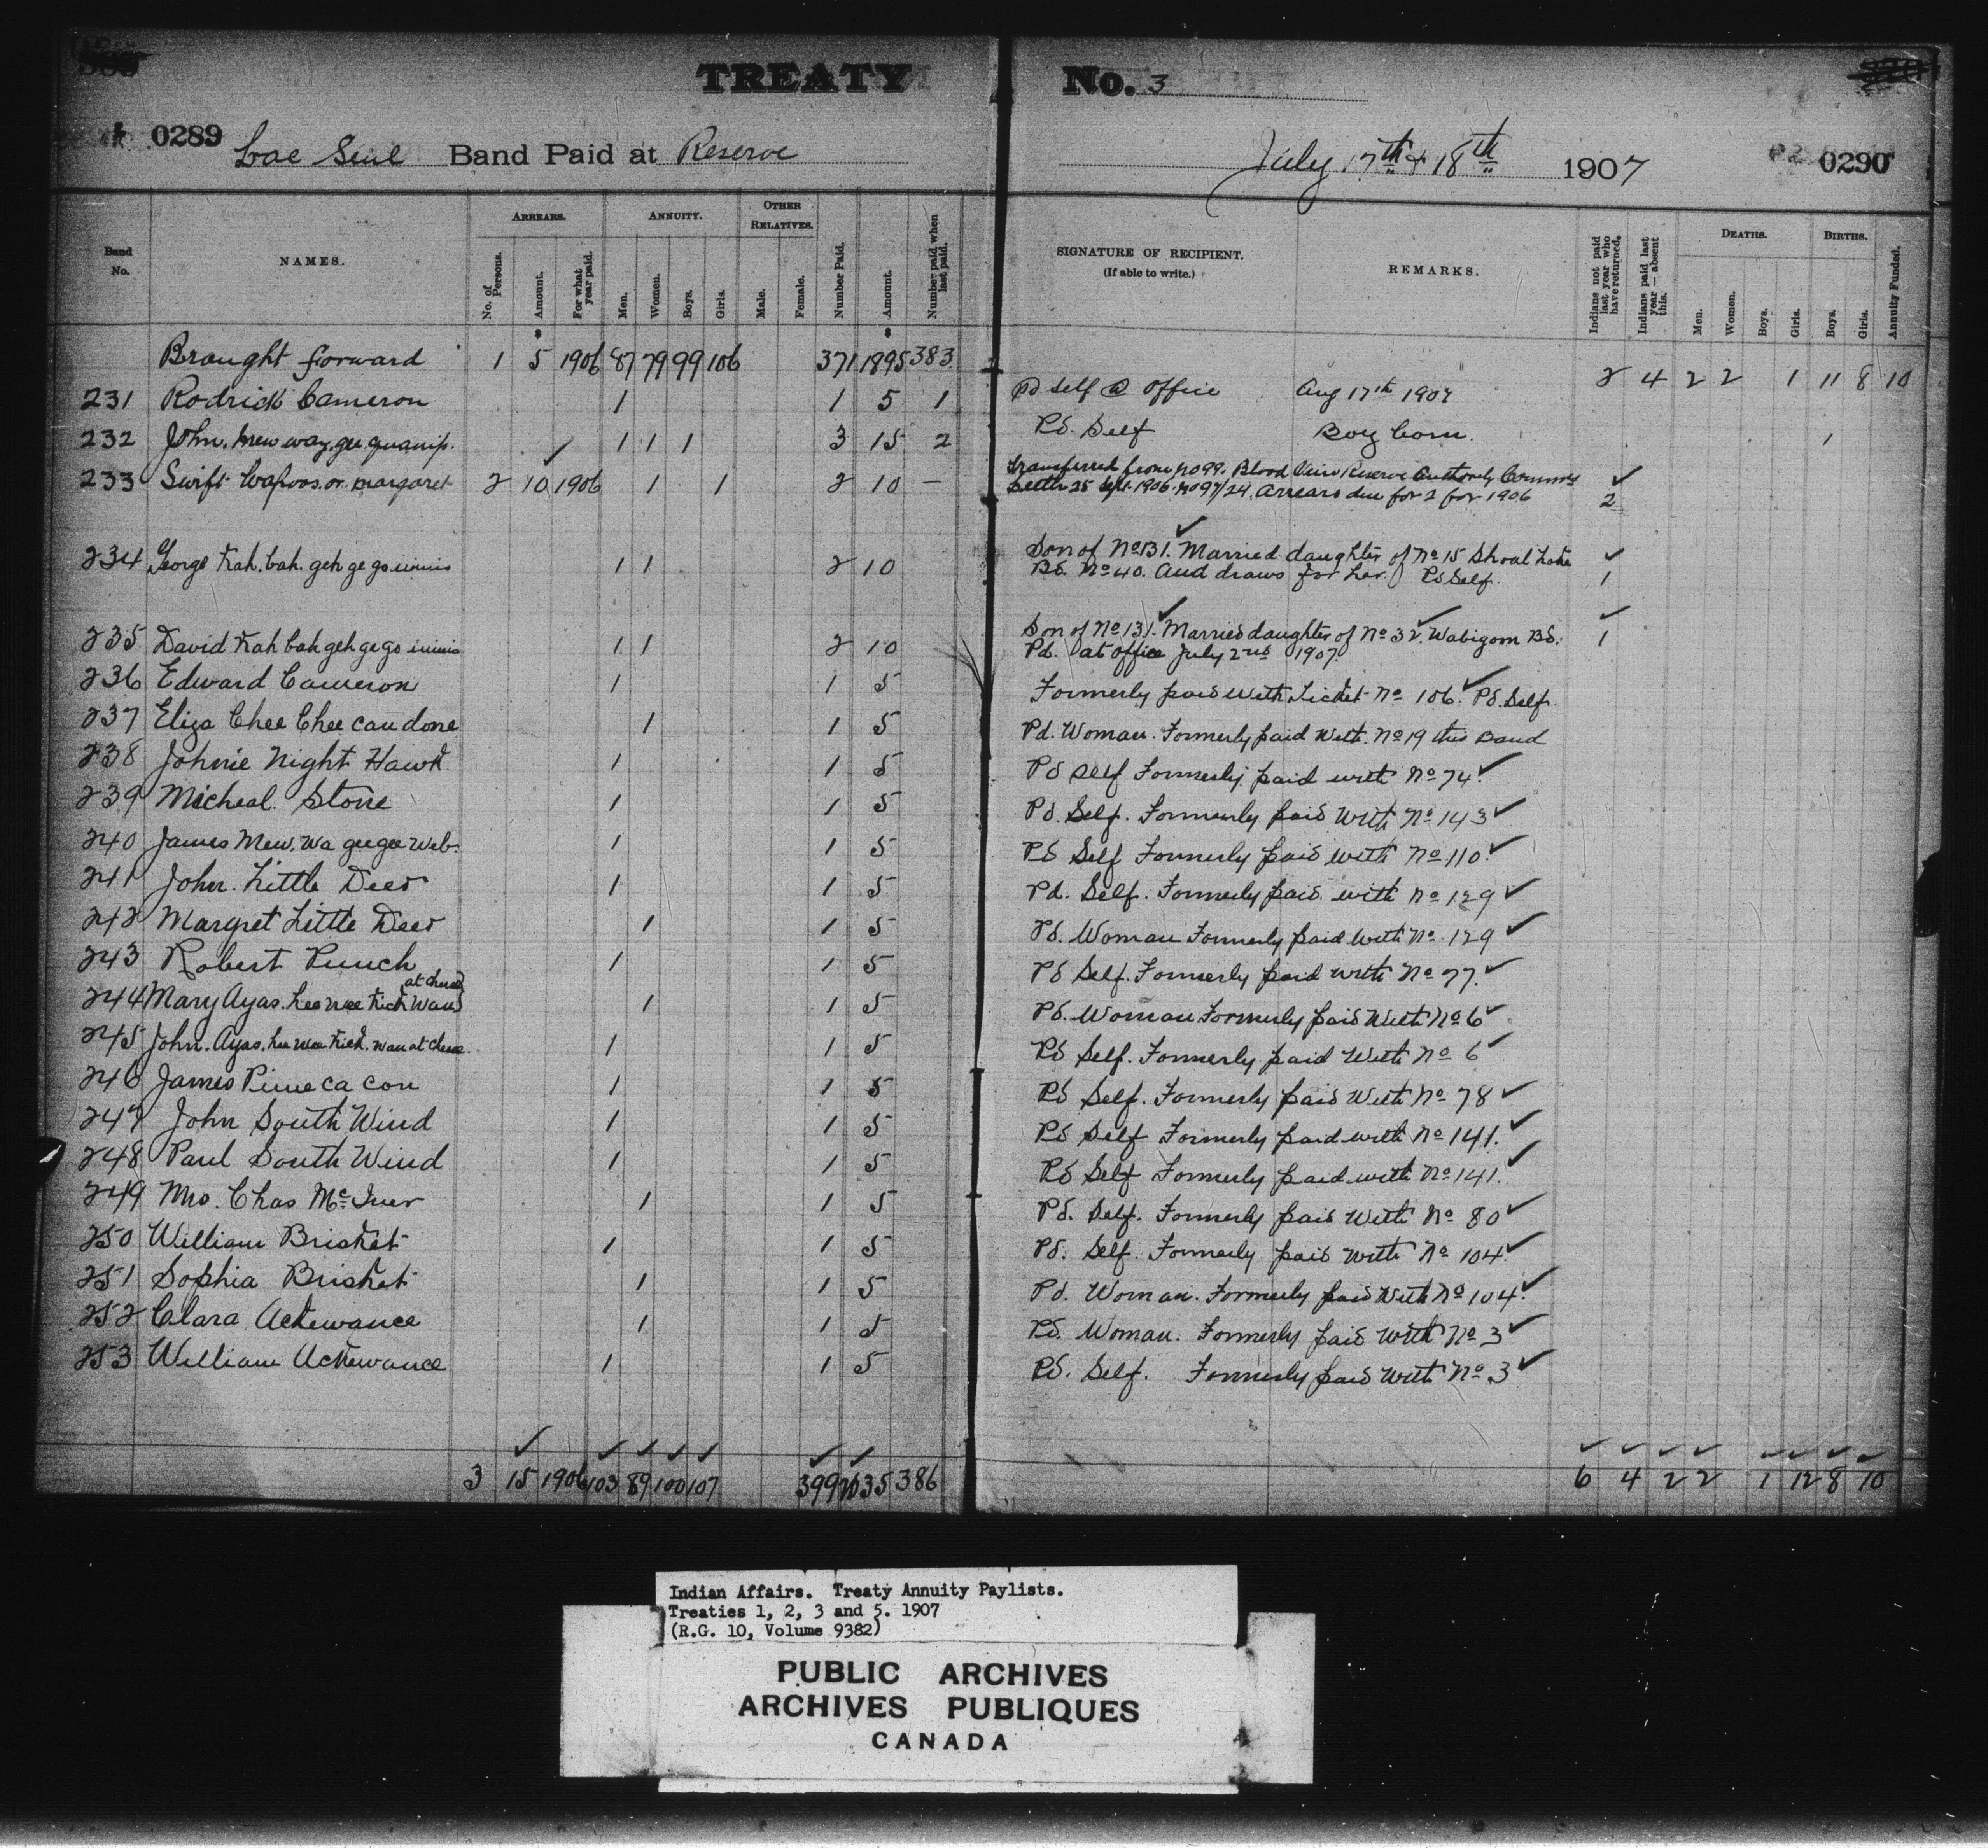 TREATY No. 3
0289 Lac Seul Band Paid at Reserve July 17th & 18th 1907 0290
Band No. NAMES. ARREARS. ANNUITY. OTHER RELATIVES. SIGNATURE OF RECIPIENT. REMARKS. DEATHS. BIRTHS.
No. of Persons. Amount. For what year paid. Men. Women. Boys. Girls. Male. Female. Number Paid. Amount. Number paid when last paid. (If able to write.) Indians not paid last year who have returned. Indians paid last year — absent this. Men. Women. Boys. Girls. Boys. Girls. Annuity Funded.
Brought forward 1 5 1906 87 79 99 106 371 1895 383 2 4 2 2 1 11 8 10
231 Rodrick Cameron 1 1 5 1 Pd self @ Office Aug 17th 1907
232 John. mew way. gee quanip. 1 1 1 3 15 2 Pd. Self Boy born. 1
233 Swift Wapoos. or margaret 2 10 1906 1 1 2 10 — transferred from No 99. Blood Reserve Authority
Letter 25 Sept. 1906. No 97/24. Arrears due for 2 for 1906 2
234 George Kah. bah. geh ge go 1 1 2 10 Son of No 131. Married daughter of No 15 Shoal Lake
Bd. No 40. And draws for her. Pd Self. 1
235 David Kah bah geh ge go 1 1 2 10 Son of No 131. Married daughter of No 32. Wabigoon Bd. 1
Pd. at office July 2nd 1907.
236 Edward Cameron 1 1 5 Formerly paid with Ticket No 106. Pd. Self.
237 Eliza Chee Chee can done 1 1 5 Pd. Woman. Formerly paid with. No 19 this Band
238 Johnie Night Hawk 1 1 5 Pd self Formerly paid with No 74.
239 Micheal. Stone 1 1 5 Pd. Self. Formerly paid with No 143
240 James Mew. wa geegee Web. 1 1 5 Pd Self Formerly paid with No 110.
241 John. Little Deer 1 1 5 Pd. Self. Formerly paid with No 129
242 Margret Little Deer 1 1 5 Pd. Woman Formerly paid with No. 129
243 Robert Punch 1 1 5 Pd Self. Formerly paid with No 77.
244 Mary Ayas. hee wee Kick Wan 1 1 5 Pd. Woman Formerly paid with No 6
245 John. Ayas. hee wee Kick. wan at chee. 1 1 5 Pd Self. Formerly paid with No 6
246 James Pime ca con 1 1 5 Pd Self. Formerly paid with No 78
247 John South Wind 1 1 5 Pd Self Formerly paid with No 141.
248 Paul South Wind 1 1 5 Pd Self Formerly paid with No 141.
249 Mrs. Chas McIver 1 1 5 Pd. Self. Formerly paid with No 80
250 William Brisket 1 1 5 Pd. Self. Formerly paid with No 104.
251 Sophia Brisket 1 1 5 Pd. Woman. Formerly paid with No 104.
252 Clara Ackewance 1 1 5 Pd. Woman. Formerly paid with No 3
253 William Ackewance 1 1 5 Pd. Self. Formerly paid with No 3
3 15 1906 103 89 100 107 399 2035 386 6 4 2 2 1 12 8 10
Indian Affairs. Treaty Annuity Paylists.
Treaties 1, 2, 3 and 5. 1907
(R.G. 10, Volume 9382)
PUBLIC ARCHIVES
ARCHIVES PUBLIQUES
CANADA